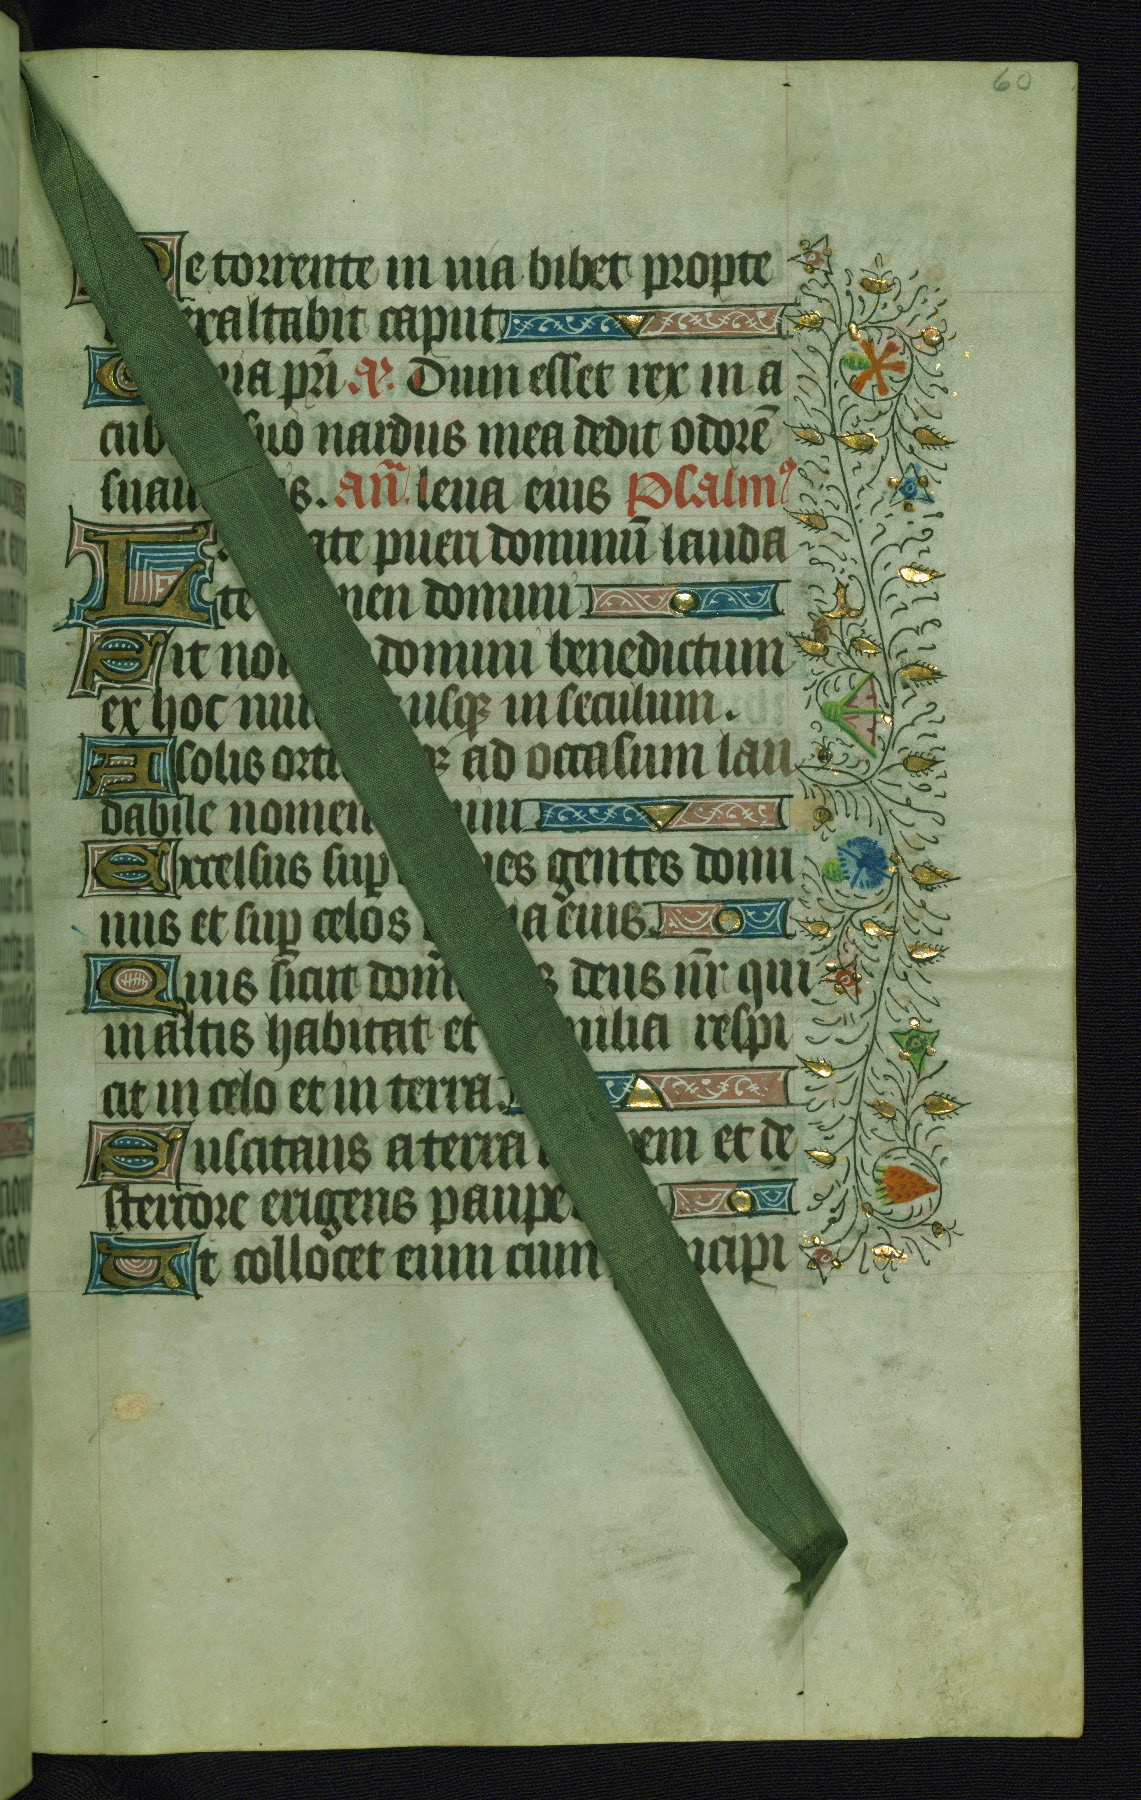 60
e torrente in uia bibet propte
exaltabit caput
pri̅ A͞. Dum esset rex in a
suo nardus mea dedit odore̅
An̅. leua eius Psalmꝰ
pueri dominu̅ lauda
te domini
Sit domini benedictum
ex hoc usqꝫ in seculum.
A solis ad occasum lau
dabile nomen
Excelsus sup gentes domi
nus et sup celos eius.
Quis sicut deus nr̅ qui
in altis habitat et respi
cit in celo et in terra.
Suscitans a terra et de
stercore erigens
Ut collocet eum cum